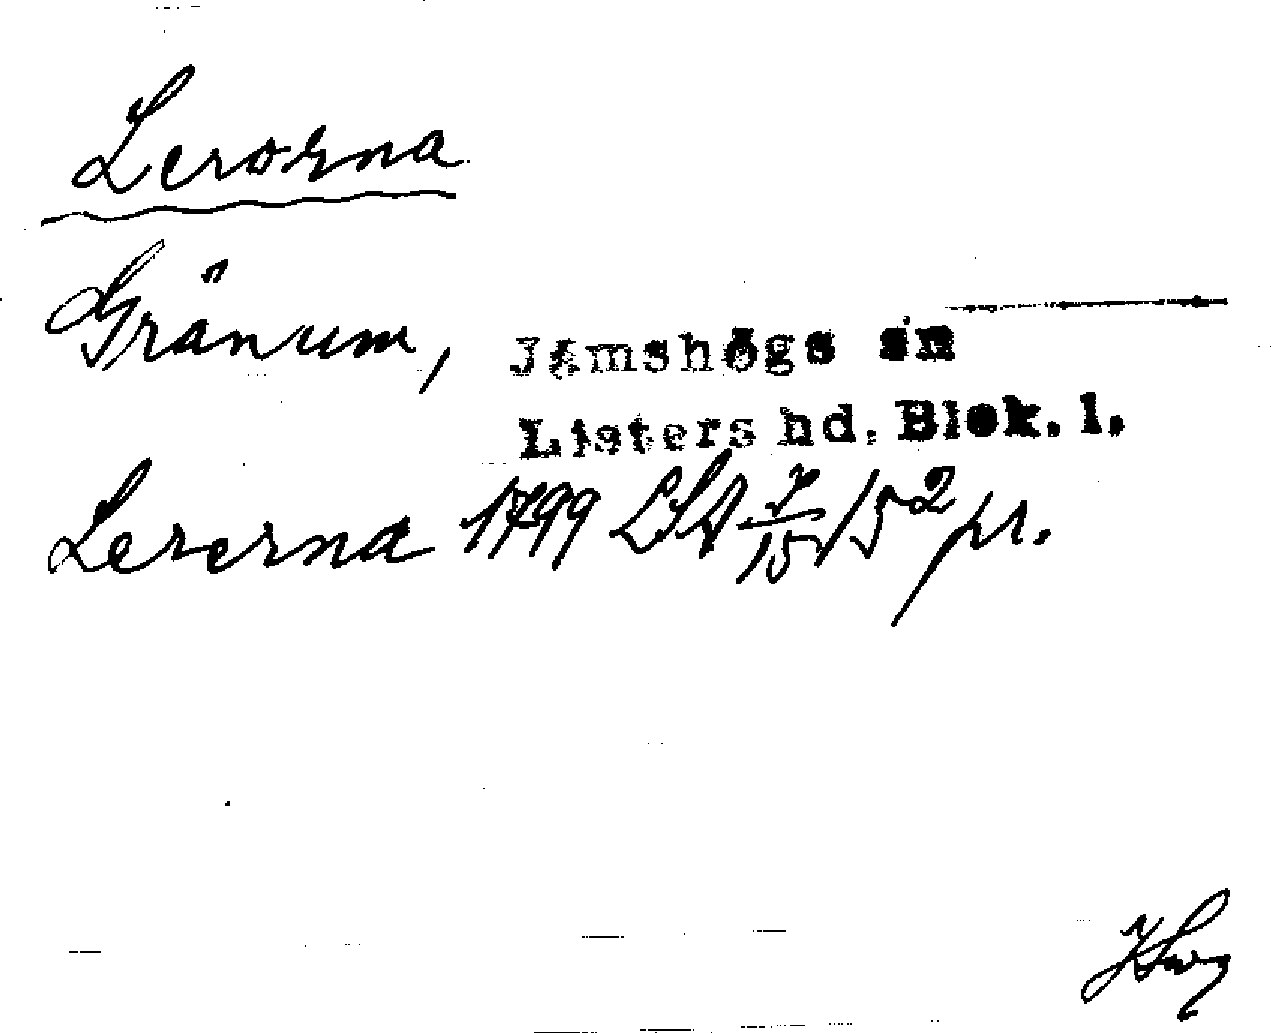 Lerorna
Gränum, Jämshögs sn
Listers hd. Blek. l.
Lererna 1799 LSA 7/15 15² pr.